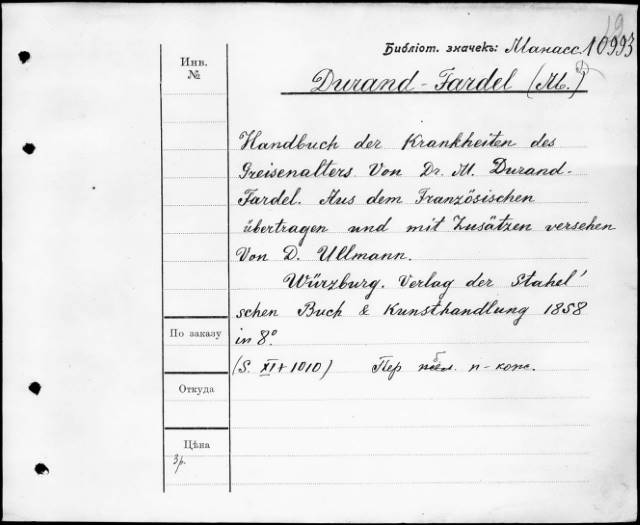 19
Библіот. значекъ: Манасс. 10993
Инв.
№
Durand-Fardel (M.)
Handbuch der Krankheiten des
Greisenalters Von Dr. M. Durand-
Fardel. Aus dem Französischen
übertragen und mit Zusätzen versehen
Von D. Ullmann.
Würzburg. Verlag der Stahel'
schen Buch & Kunsthandlung 1858
По заказу
in 8º.
(S. XI+1010) Пер п-кож.
Откуда
Цѣна
3р.